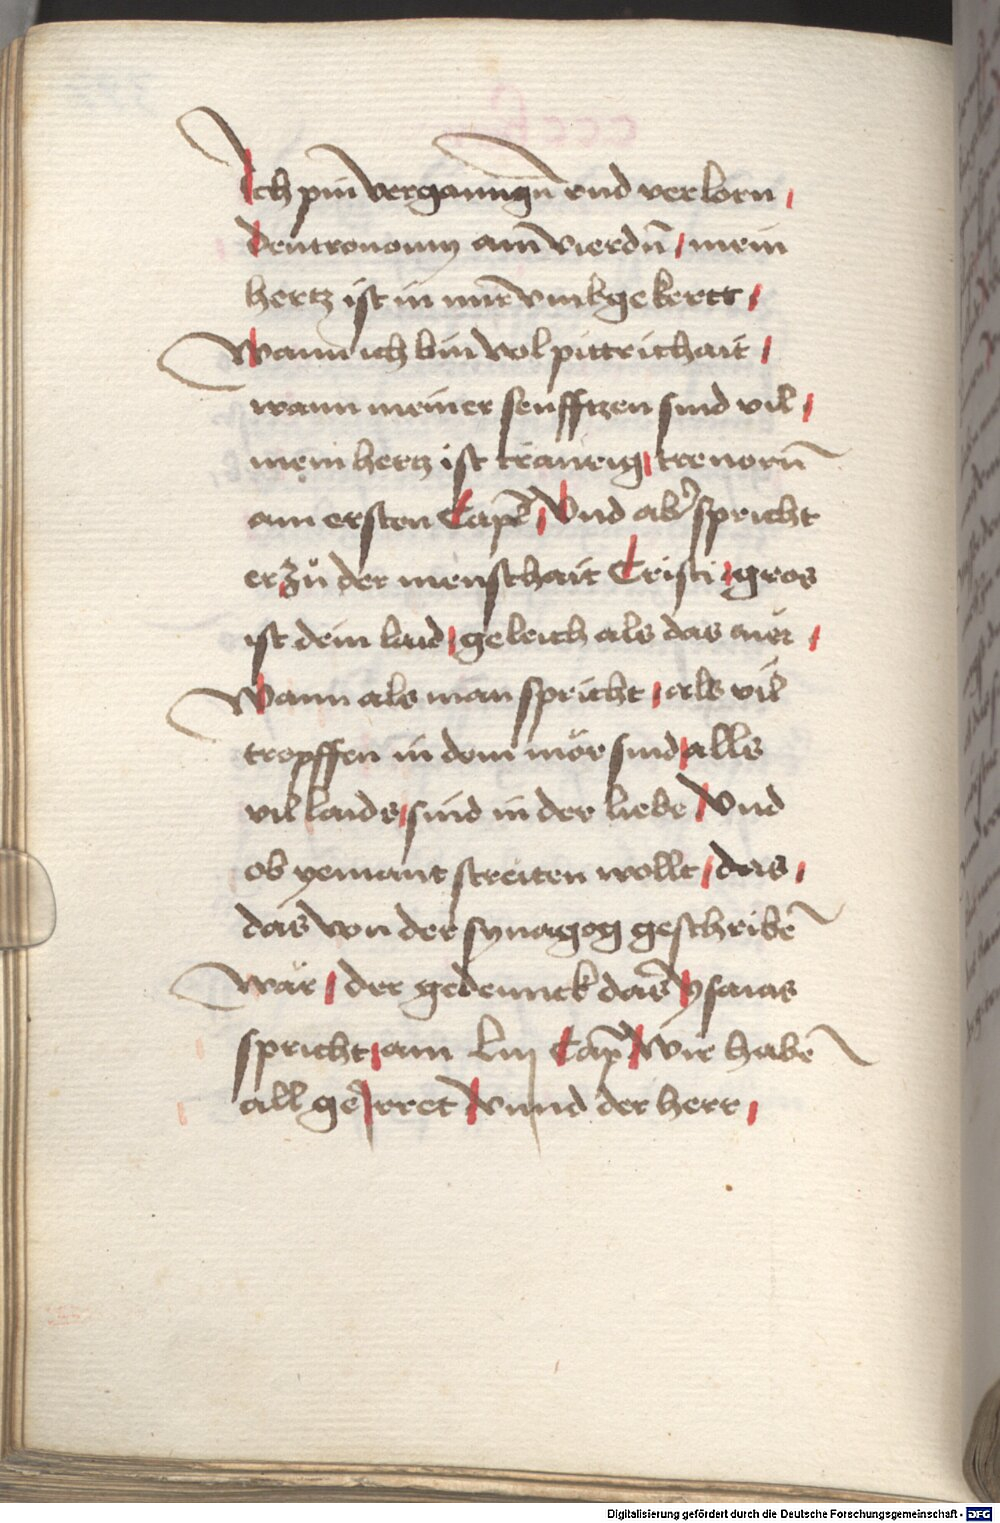 Ich pin verganngn̄ vnd verlorn /
deutronomy am̄ vierdn̄ / mein
hertz ist in mir vmbgekertt /
Wann ich bin vol pittrichait /
wann meiner seufftzen sind vil /
mein hertz ist trawrig / trenorū
am ersten Capl̄ / Vnd abʼ spricht
er zů der menschait Cristi / gros
ist dein laid / geleich als das mër /
Wann als man spricht / als vil
tropffen in dem mör sind / alls
vil laids / sind in der liebe / Vnd
ob yemant streiten wollt / das /
das von der synagog geschribē
wär / der gedennck das ysaias
spricht / am Liij Cap̄ / Wir habē
all geirret / Vnnd der herr /
Digitalisierung gefördert durch die Deutsche Forschungsgemeinschaft - DFG